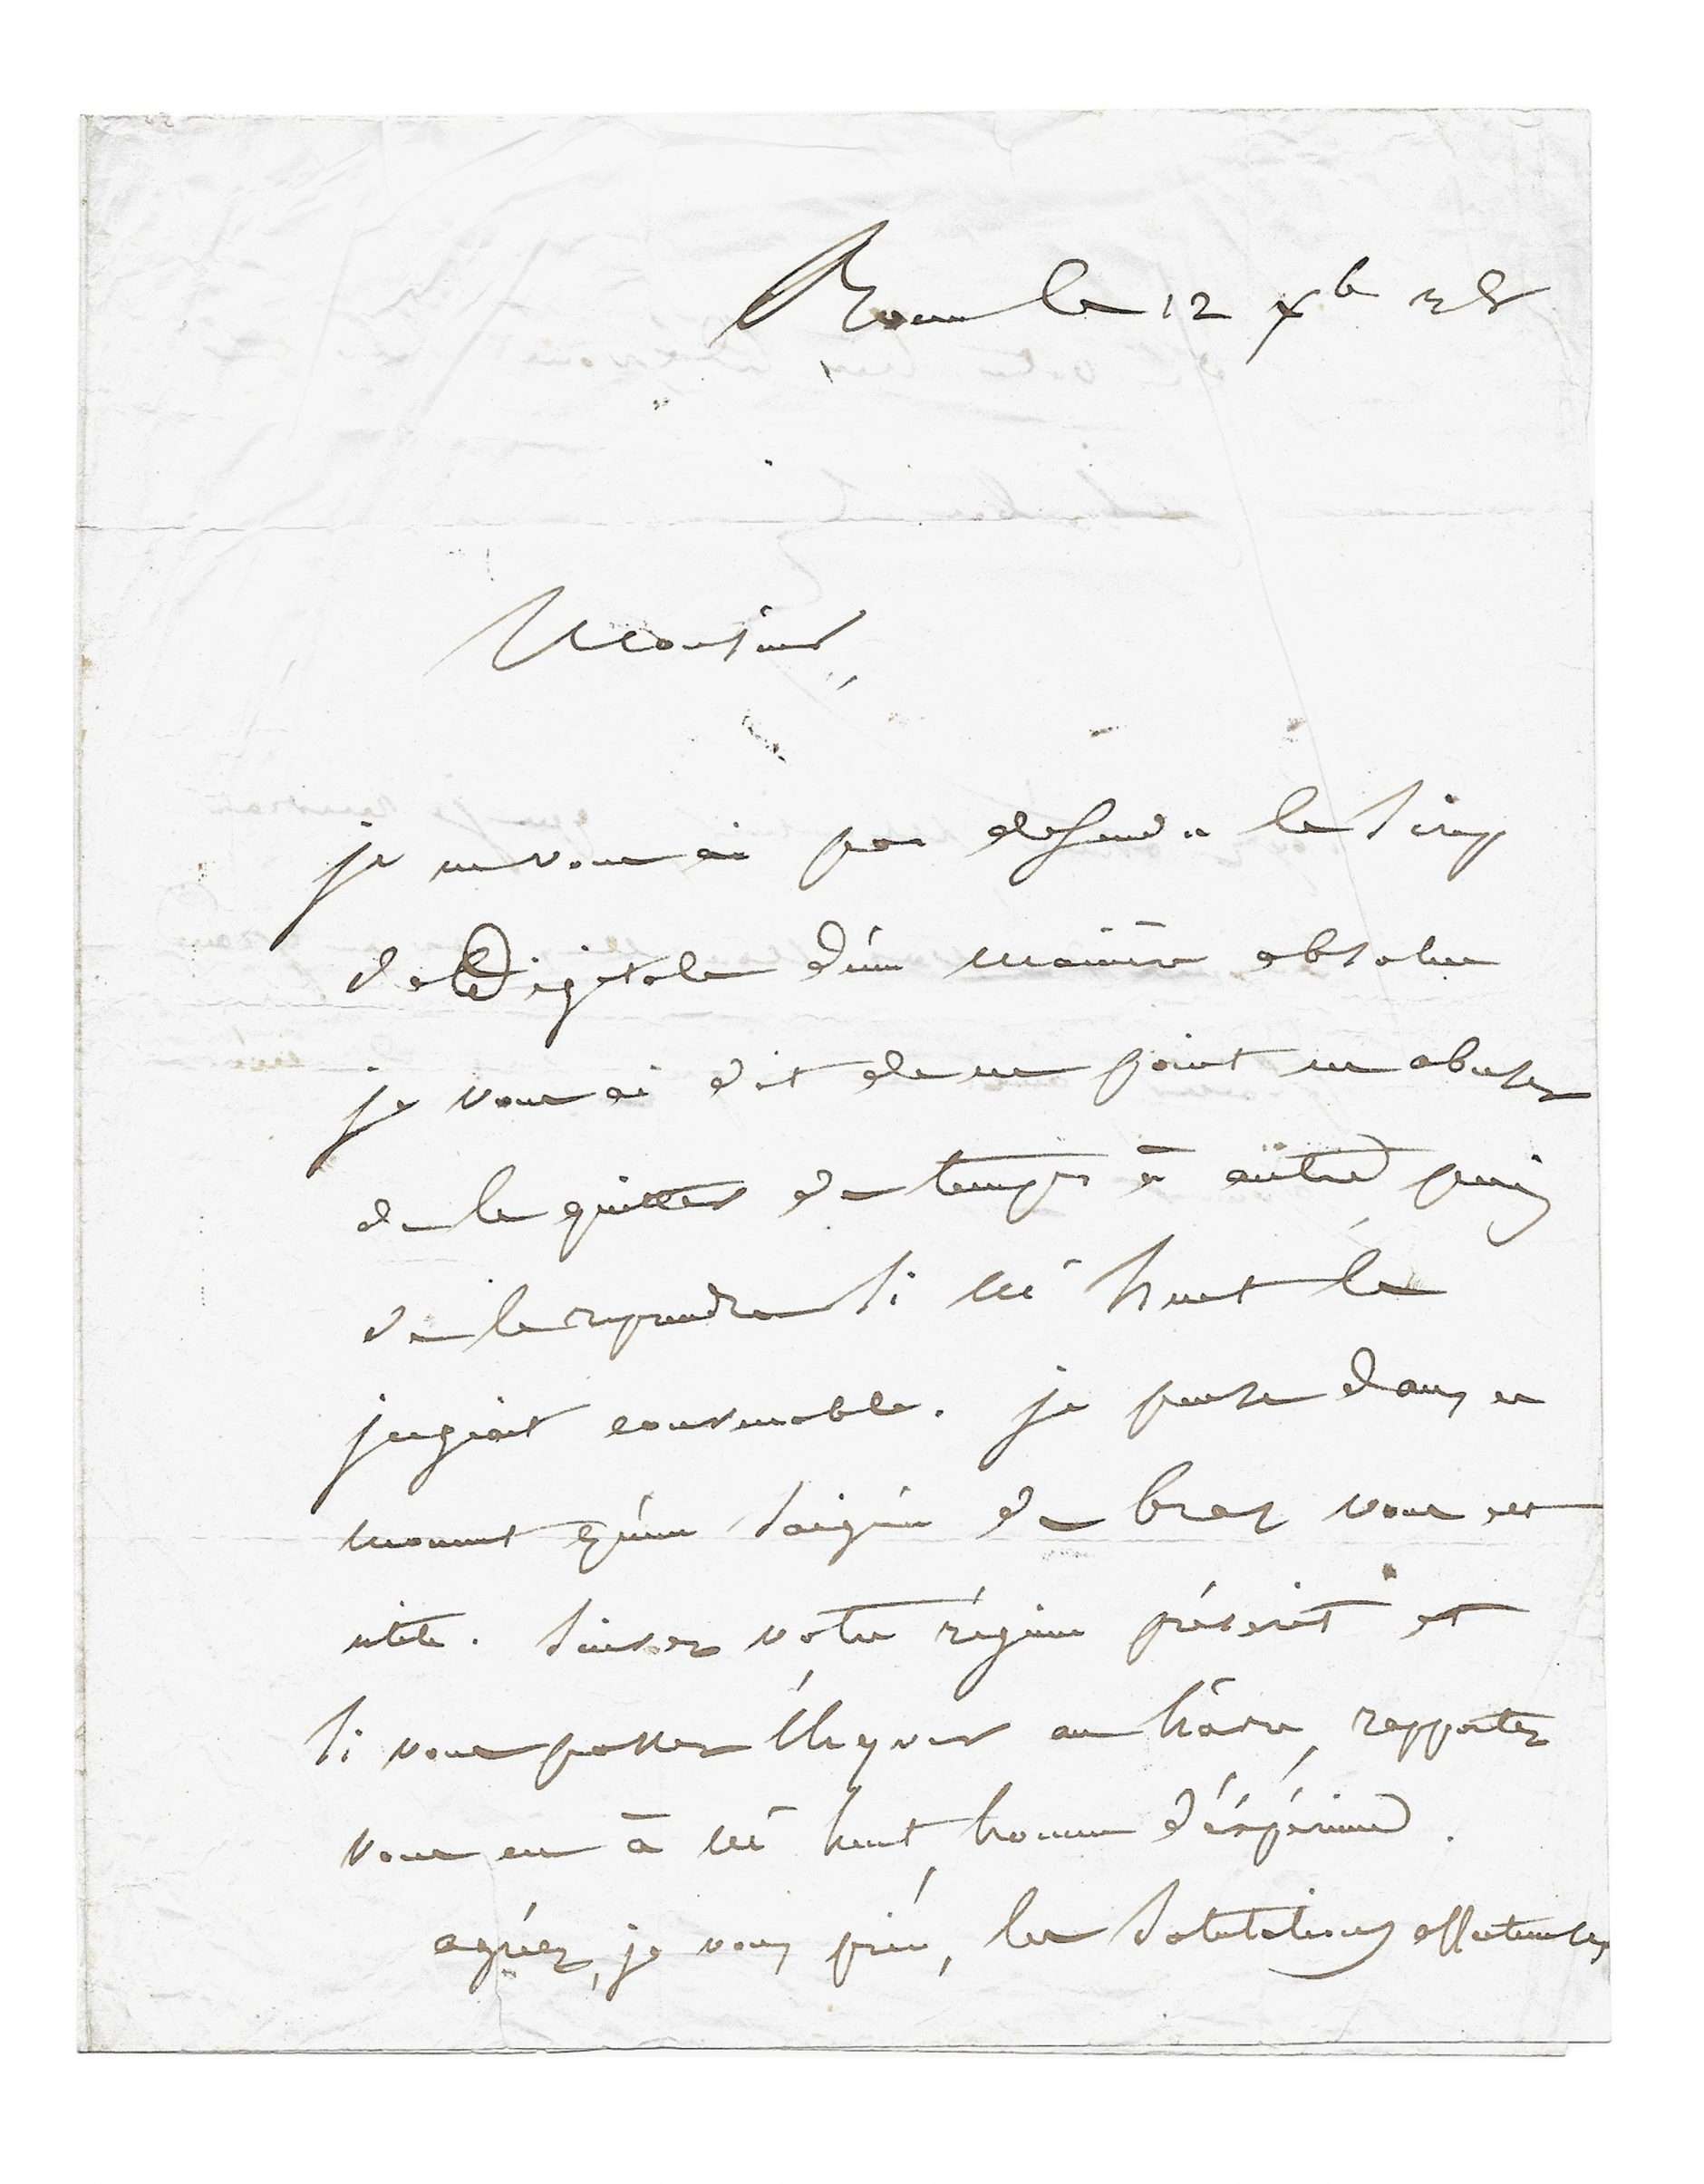 Rouen le 12 Xb 38
Monsieur,
je ne vous ai pas défendu le Sirop
de Digitale d'une manière absolue
je vous ai dit de ne point en abuser
de le quitter de temps à autre puis
de le reprendre si Mr huet le
jugeait convenable. je pense dans ce
moment qu'une saignée de bras vous est
utile. Suivez votre régime prescrit et
si vous passez l'hyver au hâvre, rapportez
vous en à Mr huet, homme d'expérience.
agréez, je vous prie, les salutations affectueuses